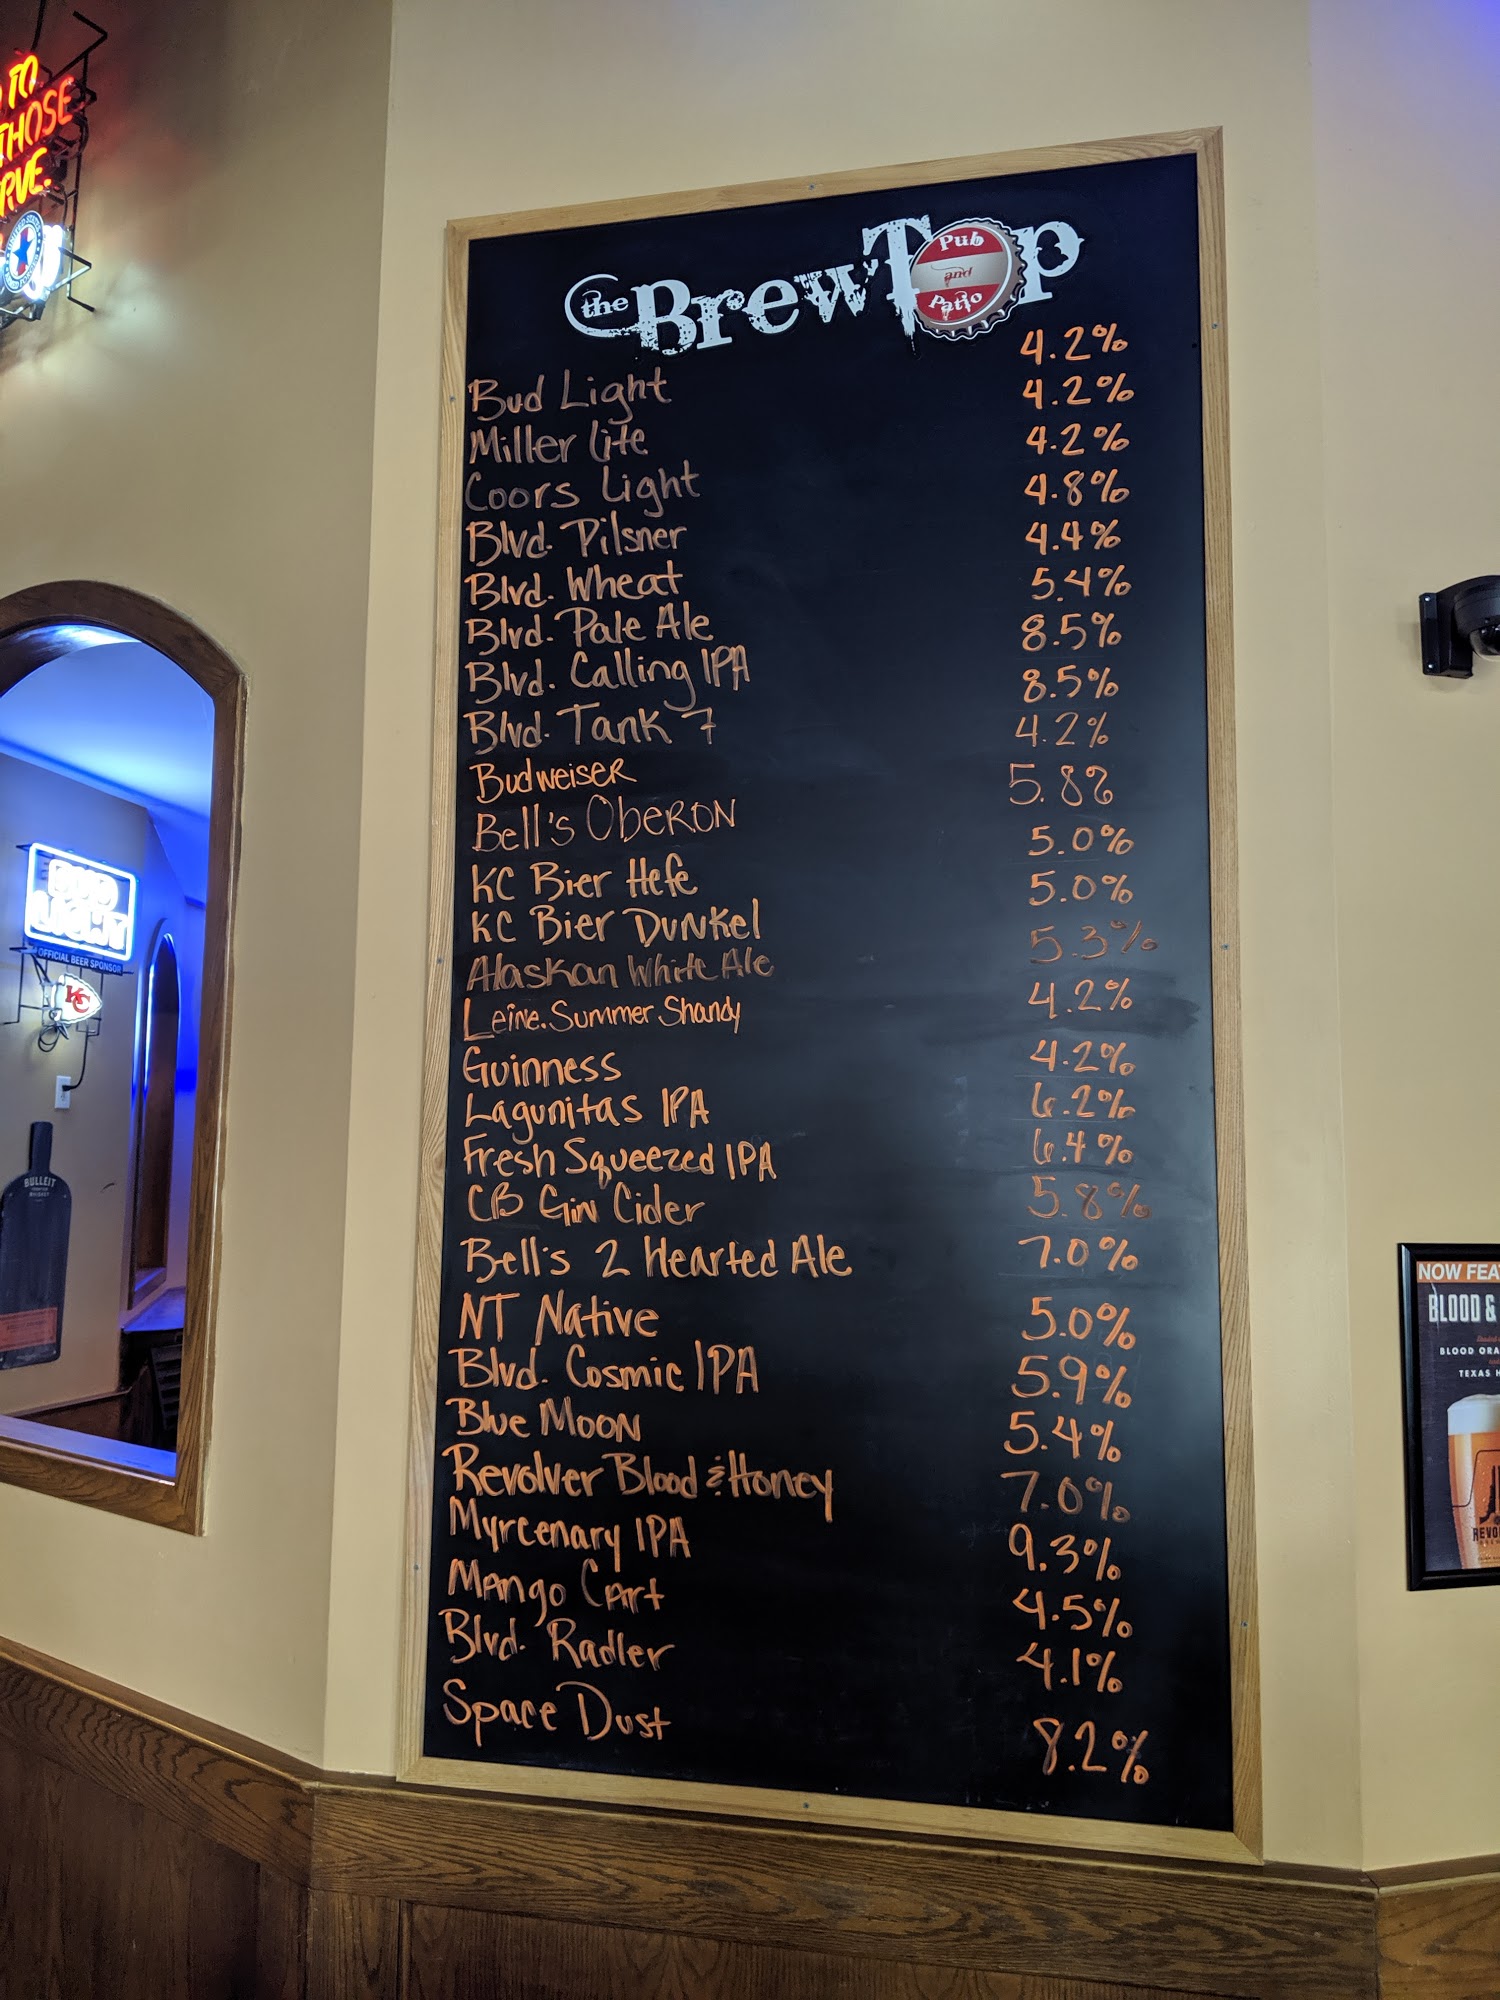 TO
THOSE
RVE.
the BrewTop
Pub
and
Patio
Bud Light 4.2%
Miller Lite 4.2%
Coors Light 4.2%
Blvd. Pilsner 4.8%
Blvd. Wheat 4.4%
Blvd. Pale Ale 5.4%
Blvd. Calling IPA 8.5%
Blvd. Tank 7 8.5%
Budweiser 4.2%
Bell's Oberon 5.8%
KC Bier Hefe 5.0%
KC Bier Dunkel 5.0%
Alaskan White Ale 5.3%
Leine. Summer Shandy 4.2%
Guinness 4.2%
Lagunitas IPA 6.2%
Fresh Squeezed IPA 6.4%
CB Gin Cider 5.8%
Bell's 2 Hearted Ale 7.0%
NT Native 5.0%
Blvd. Cosmic IPA 5.9%
Blue Moon 5.4%
Revolver Blood & Honey 7.0%
Myrcenary IPA 9.3%
Mango Cart 4.5%
Blvd. Radler 4.1%
Space Dust 8.2%
BUD
LIGHT
OFFICIAL BEER SPONSOR
KC
BULLEIT
WHISKEY
NOW FEA
BLOOD &
BLOOD ORA
TEXAS H
REVO